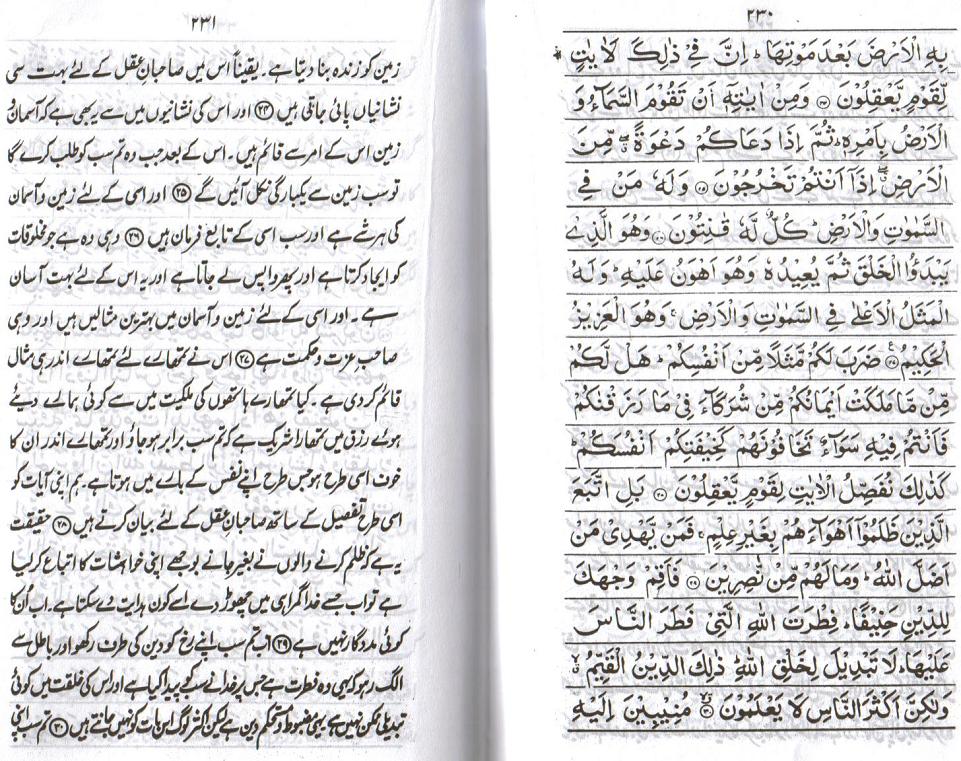 ٢٣٠
بِهِ الْاَرْضَ بَعْدَ مَوْتِهَا ؕ اِنَّ فِيْ ذٰلِكَ لَاٰيٰتٍ
لِّقَوْمٍ يَّعْقِلُوْنَ ۝ وَمِنْ اٰيٰتِهٖۤ اَنْ تَقُوْمَ السَّمَآءُ وَ
الْاَرْضُ بِاَمْرِهٖ ؕ ثُمَّ اِذَا دَعَاكُمْ دَعْوَةً ۖ مِّنَ
الْاَرْضِ ۖ اِذَاۤ اَنْتُمْ تَخْرُجُوْنَ ۝ وَلَهٗ مَنْ فِي
السَّمٰوٰتِ وَالْاَرْضِ ؕ كُلٌّ لَّهٗ قٰنِتُوْنَ ۝ وَهُوَ الَّذِيْ
يَبْدَؤُا الْخَلْقَ ثُمَّ يُعِيْدُهٗ وَهُوَ اَهْوَنُ عَلَيْهِ ؕ وَلَهُ
الْمَثَلُ الْاَعْلٰى فِي السَّمٰوٰتِ وَالْاَرْضِ ۚ وَهُوَ الْعَزِيْزُ
الْحَكِيْمُ ۝ ضَرَبَ لَكُمْ مَّثَلًا مِّنْ اَنْفُسِكُمْ ؕ هَلْ لَّكُمْ
مِّنْ مَّا مَلَكَتْ اَيْمَانُكُمْ مِّنْ شُرَكَآءَ فِيْ مَا رَزَقْنٰكُمْ
فَاَنْتُمْ فِيْهِ سَوَآءٌ تَخَافُوْنَهُمْ كَخِيْفَتِكُمْ اَنْفُسَكُمْ ؕ
كَذٰلِكَ نُفَصِّلُ الْاٰيٰتِ لِقَوْمٍ يَّعْقِلُوْنَ ۝ بَلِ اتَّبَعَ
الَّذِيْنَ ظَلَمُوْۤا اَهْوَآءَهُمْ بِغَيْرِ عِلْمٍ ۚ فَمَنْ يَّهْدِيْ مَنْ
اَضَلَّ اللّٰهُ ؕ وَمَا لَهُمْ مِّنْ نّٰصِرِيْنَ ۝ فَاَقِمْ وَجْهَكَ
لِلدِّيْنِ حَنِيْفًا ؕ فِطْرَتَ اللّٰهِ الَّتِيْ فَطَرَ النَّاسَ
عَلَيْهَا ؕ لَا تَبْدِيْلَ لِخَلْقِ اللّٰهِ ؕ ذٰلِكَ الدِّيْنُ الْقَيِّمُ ۙ
وَلٰكِنَّ اَكْثَرَ النَّاسِ لَا يَعْلَمُوْنَ ۝ مُنِيْبِيْنَ اِلَيْهِ
٢٣١
زمین کو زندہ بنا دیتا ہے۔ یقیناً اس میں صاحبانِ عقل کے لئے بہت سی
نشانیاں پائی جاتی ہیں (۲۴) اور اس کی نشانیوں میں سے یہ بھی ہے کہ آسمان و
زمین اس کے امر سے قائم ہیں۔ اس کے بعد جب وہ تم سب کو طلب کرے گا
تو سب زمین سے یکبارگی نکل آئیں گے (۲۵) اور اسی کے لئے زمین و آسمان
کی ہر شے ہے اور سب اسی کے تابع فرمان ہیں (۲۶) وہی وہ ہے جو مخلوقات
کو ایجاد کرتا ہے اور پھر واپس لے جاتا ہے اور یہ اس کے لئے بہت آسان
ہے۔ اور اسی کے لئے زمین و آسمان میں بہترین مثالیں ہیں اور وہی
صاحب عزت و حکمت ہے (۲۷) اس نے تمھارے لئے تمھارے اندر ہی مثال
قائم کر دی ہے۔ کیا تمھارے ہاتھوں کی ملکیت میں سے کوئی ہمارے دیئے
ہوئے رزق میں تمھارا شریک ہے کہ تم سب برابر ہو جاؤ اور تمھارے اندر ان کا
خوف اسی طرح ہو جس طرح اپنے نفس کے بارے میں ہوتا ہے۔ ہم اپنی آیات کو
اسی طرح تفصیل کے ساتھ صاحبانِ عقل کے لئے بیان کرتے ہیں (۲۸) حقیقت
یہ ہے کہ ظلم کرنے والوں نے بغیر جانے بوجھے اپنی خواہشات کا اتباع کر لیا
ہے تو اب جسے خدا گمراہی میں چھوڑ دے اسے کون ہدایت دے سکتا ہے۔ اب اُن کا
کوئی مددگار نہیں ہے (۲۹) اب تم سب اپنے رخ کو دین کی طرف رکھو اور باطل سے
الگ رہو کہ یہی وہ فطرت ہے جس پر خدا نے سب کو پیدا کیا ہے اور اس کی خلقت میں کوئی
تبدیلی ممکن نہیں ہے یہی مضبوط اور مستحکم دین ہے لیکن اکثر لوگ اس بات کو نہیں جانتے ہیں (۳۰) تم سب اپنی